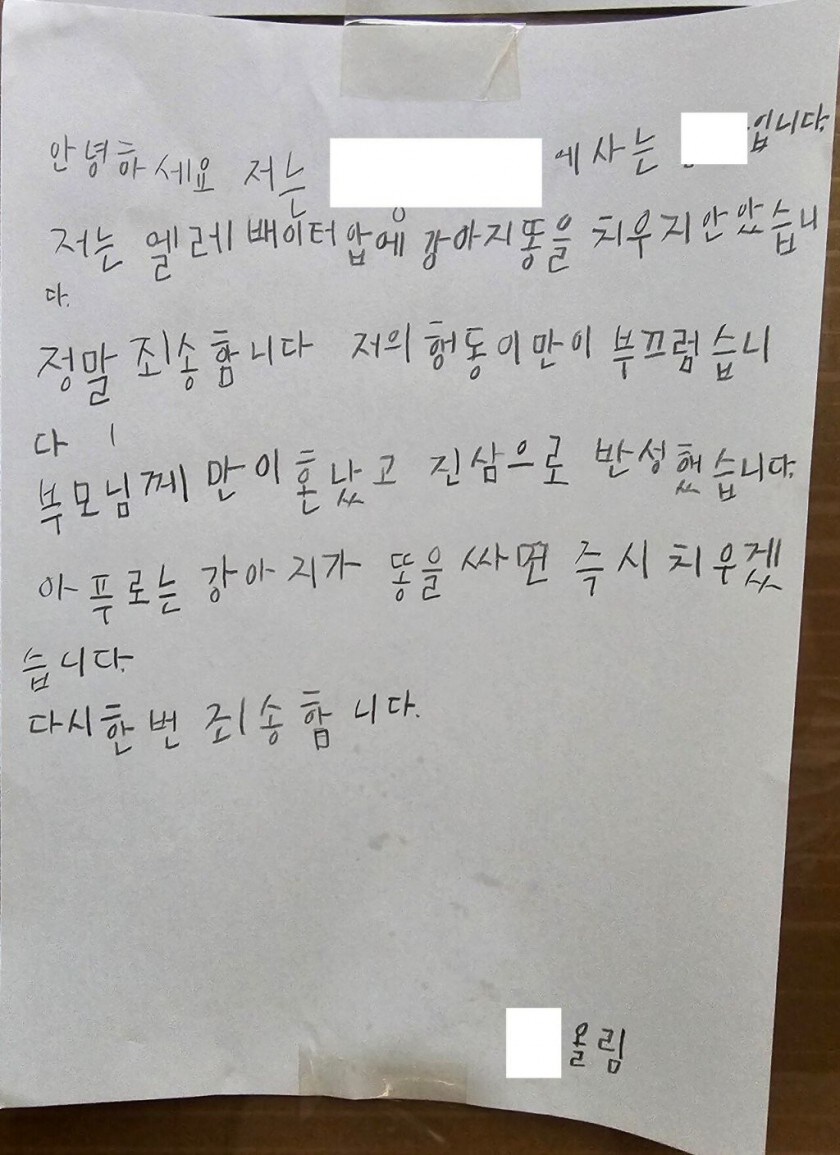 안녕하세요 저는 에사는 입니다
저는 엘레배이터압에 강아지똥을 치우지안았습니
다.
정말 죄송함니다 저의 행동이만이 부끄럽습니
다
부모님께 만이혼났고 진삼으로 반성했습니다.
아푸로는 강아지가 똥을 싸면 즉시 치우겠
습니다.
다시한번 죄송함니다.
올림